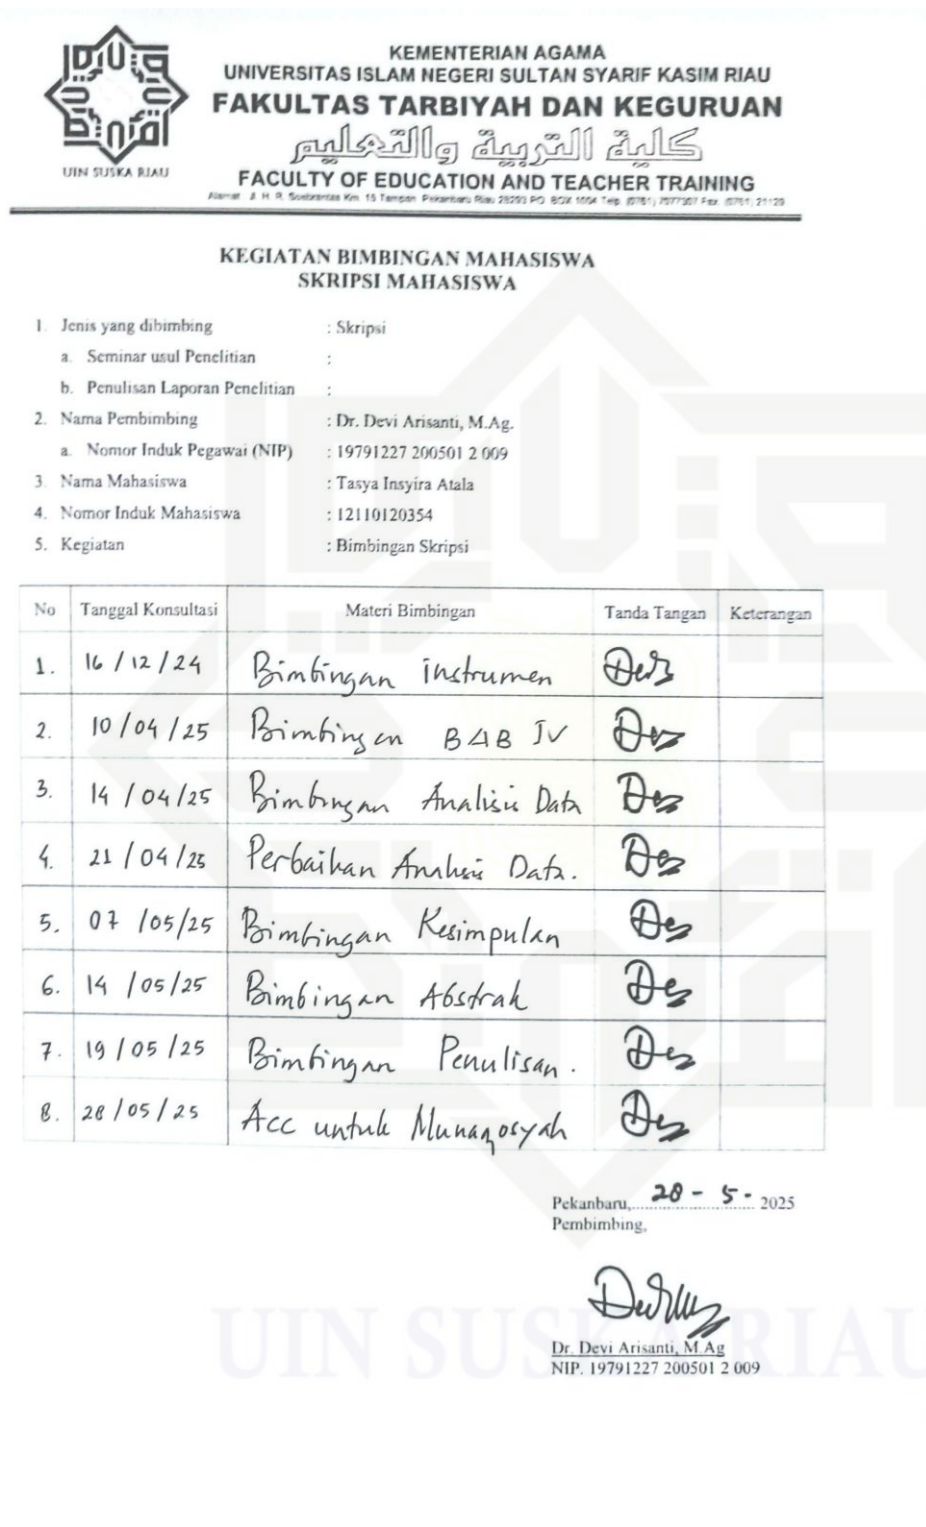 UIN SUSKA RIAU
KEMENTERIAN AGAMA
UNIVERSITAS ISLAM NEGERI SULTAN SYARIF KASIM RIAU
FAKULTAS TARBIYAH DAN KEGURUAN
كلية التربية والتعليم
FACULTY OF EDUCATION AND TEACHER TRAINING
Alamat : Jl. H. R. Soebrantas Km. 15 Tampan Pekanbaru Riau 28293 PO. BOX 1004 Telp. (0761) 7077307 Fax. (0761) 21129
KEGIATAN BIMBINGAN MAHASISWA
SKRIPSI MAHASISWA
1. Jenis yang dibimbing : Skripsi
a. Seminar usul Penelitian :
b. Penulisan Laporan Penelitian :
2. Nama Pembimbing : Dr. Devi Arisanti, M.Ag.
a. Nomor Induk Pegawai (NIP) : 19791227 200501 2 009
3. Nama Mahasiswa : Tasya Insyira Atala
4. Nomor Induk Mahasiswa : 12110120354
5. Kegiatan : Bimbingan Skripsi
No Tanggal Konsultasi Materi Bimbingan Tanda Tangan Keterangan
1. 16/12/24 Bimbingan instrumen
2. 10/04/25 Bimbingan BAB IV
3. 14/04/25 Bimbingan Analisis Data
4. 21/04/25 Perbaikan Analisis Data.
5. 07/05/25 Bimbingan Kesimpulan
6. 14/05/25 Bimbingan Abstrak
7. 19/05/25 Bimbingan Penulisan.
8. 28/05/25 Acc untuk Munaqosyah
Pekanbaru, 28 - 5 - 2025
Pembimbing,
Dr. Devi Arisanti, M.Ag
NIP. 19791227 200501 2 009
UIN SUSKA RIAU